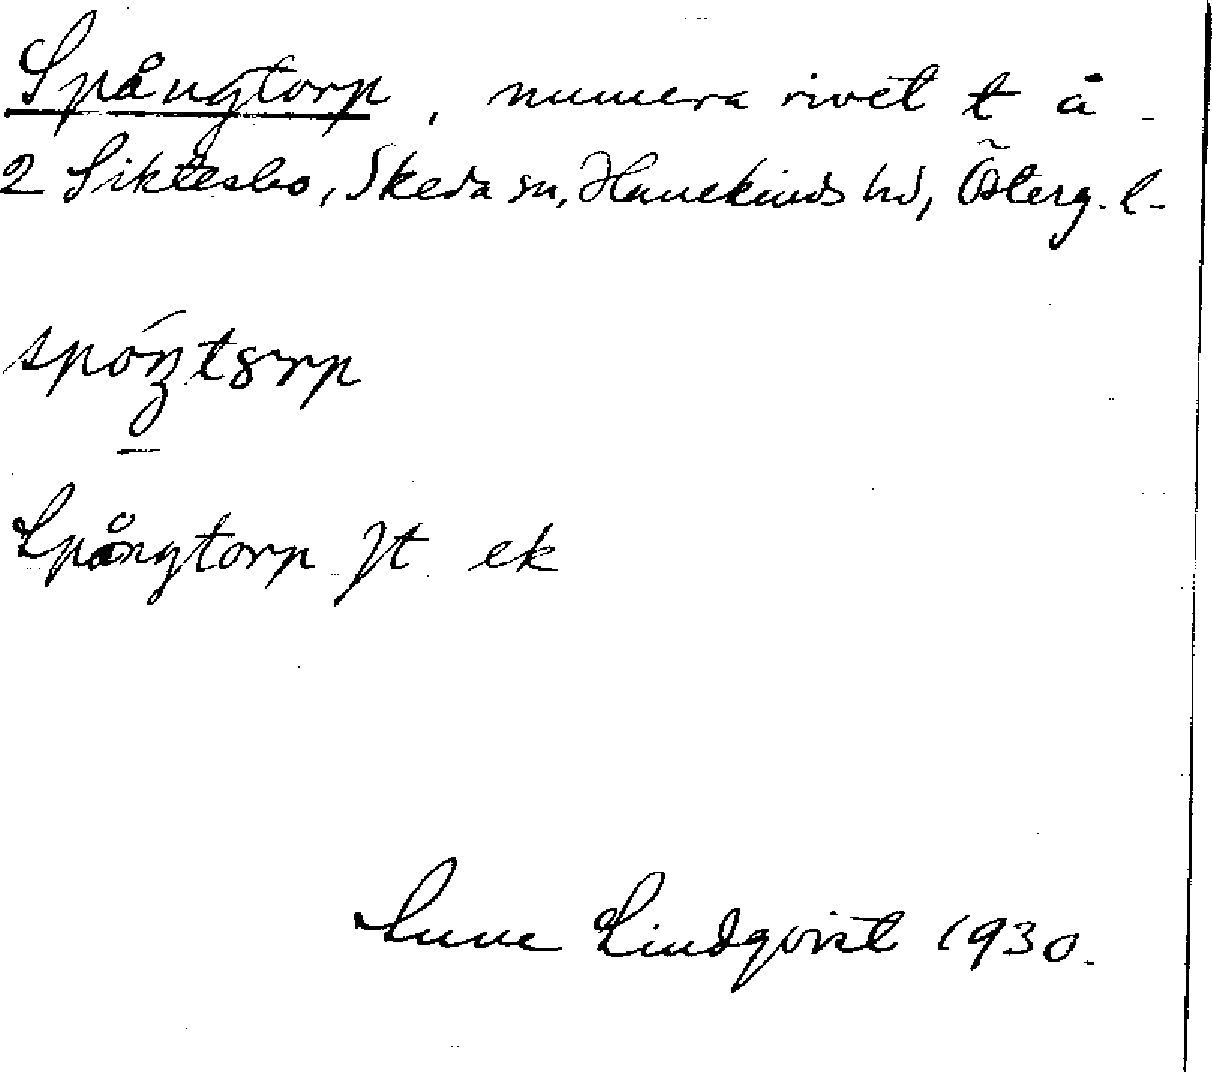 Spångtorp, numera rivet t å
2 Siktesbo, Skeda sn, Hanekinds hd, Österg. l.
Spångtorp Jt ek
Sune Lindqvist 1930.